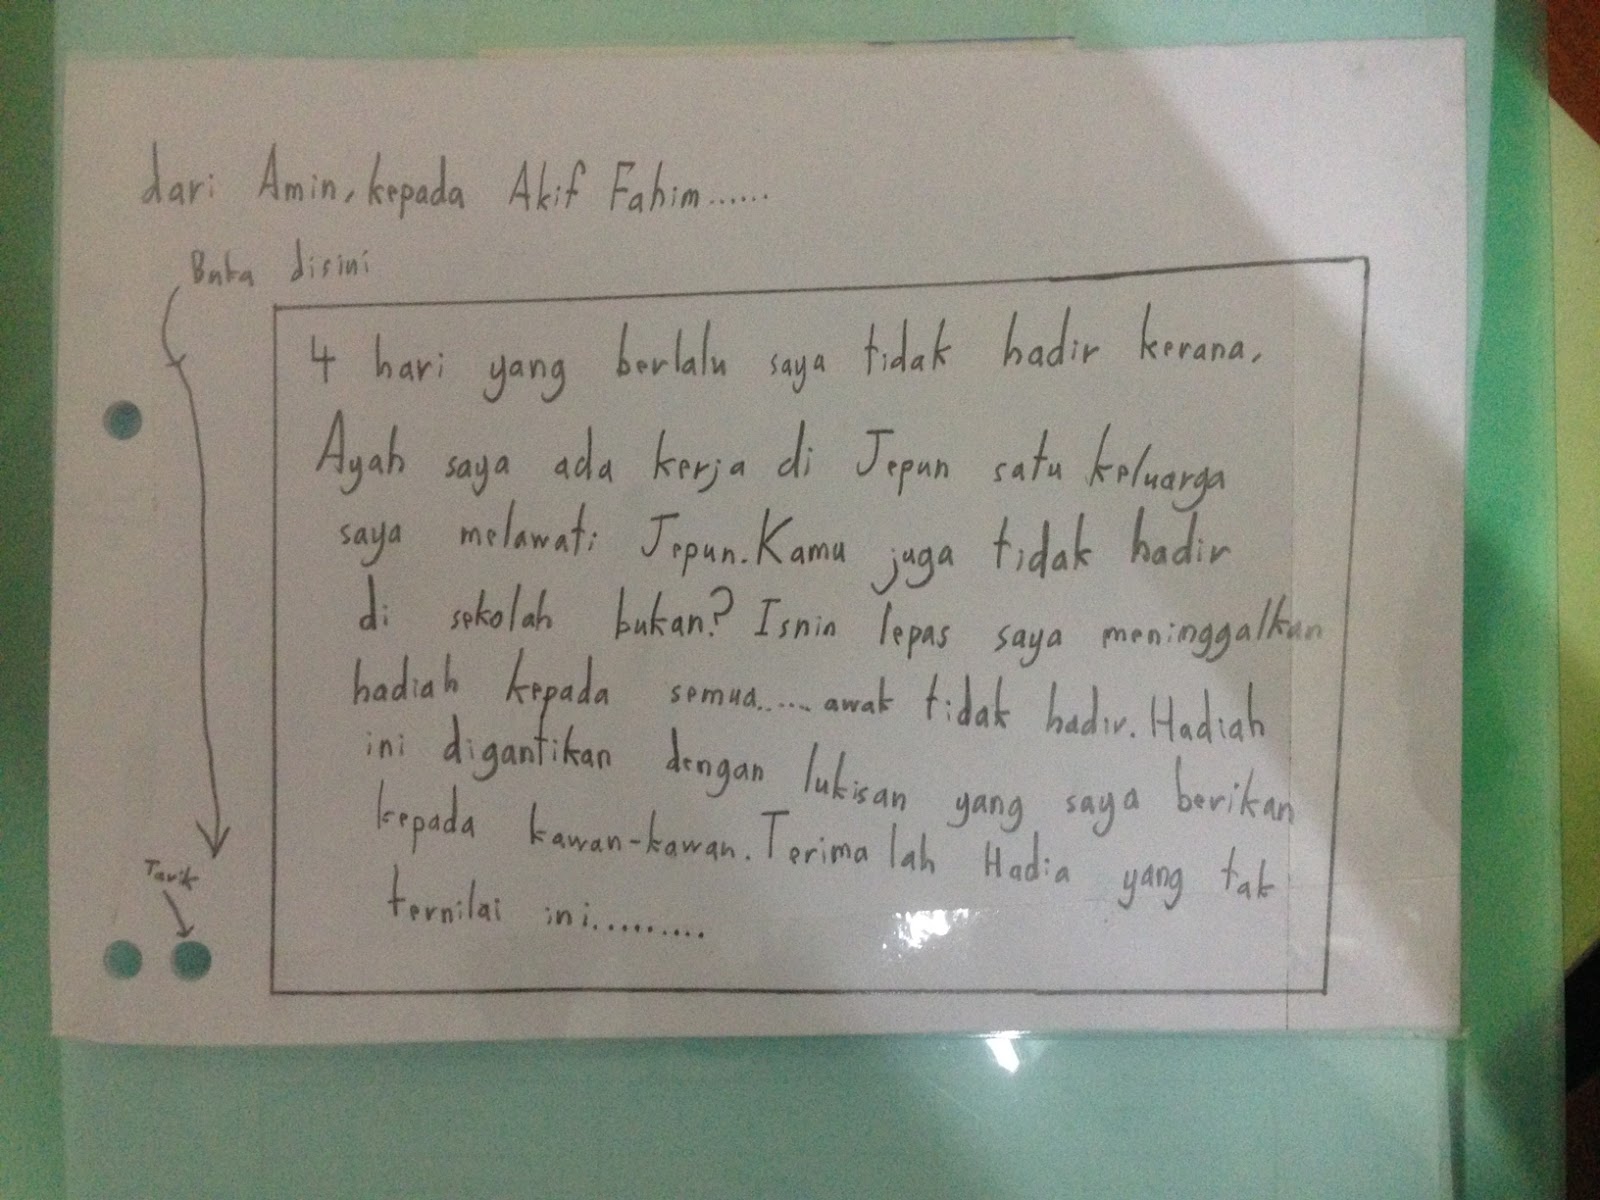 dari Amin, kepada Akif Fahim......
Buka disini
4 hari yang berlalu saya tidak hadir kerana,
Ayah saya ada kerja di Jepun satu keluarga
saya melawati Jepun. Kamu juga tidak hadir
di sekolah bukan? Isnin lepas saya meninggalkan
hadiah kepada semua...... awak tidak hadir. Hadiah
ini digantikan dengan lukisan yang saya berikan
kepada kawan-kawan. Terima lah Hadia yang tak
ternilai ini.........
Tarik